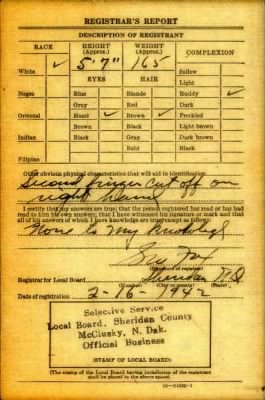 REGISTRAR'S REPORT
DESCRIPTION OF REGISTRANT
RACE HEIGHT (Approx.) WEIGHT (Approx.) COMPLEXION
White ✓ 5'7" 165 Sallow
EYES HAIR Light
Negro Blue Blonde Ruddy ✓
Gray Red Dark
Oriental Hazel ✓ Brown ✓ Freckled
Brown Black Light brown
Indian Black Gray Dark brown
Bald Black
Filipino
Other obvious physical characteristics that will aid in identification
Second finger cut off on
right hand
I certify that my answers are true; that the person registered has read or has had
read to him his own answers; that I have witnessed his signature or mark and that
all of his answers of which I have knowledge are true, except as follows:
None to my knowledge
Geo Fax
(Signature of registrar)
Registrar for Local Board Sheridan N.D.
Date of registration 2-16-1942
Selective Service
Local Board, Sheridan County
McClusky, N. Dak.
Official Business
(STAMP OF LOCAL BOARD)
(The stamp of the Local Board having jurisdiction of the registrant
shall be placed in the above space.)